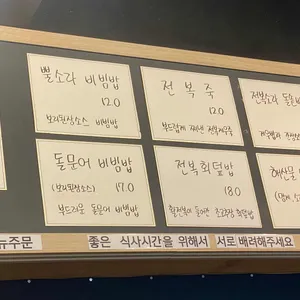 뿔소라 비빔밥
12.0
보리된장소스 비빔밥
전복죽
12.0
부드럽게
전복소라
돌문어 비빔밥
(보리된장소스) 17.0
부드러운 돌문어 비빔밥
전복회덮밥
18.0
초고추장 회덮밥
해산물
뉴주문 좋은 식사시간을 위해서 서로 배려해주세요